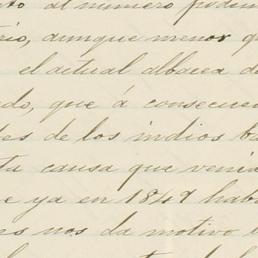 al número
aunque menor
el actual albacea de
que á consecuen
de los indios ba
causa que venia
e ya en 1849 hab
es nos da motivo